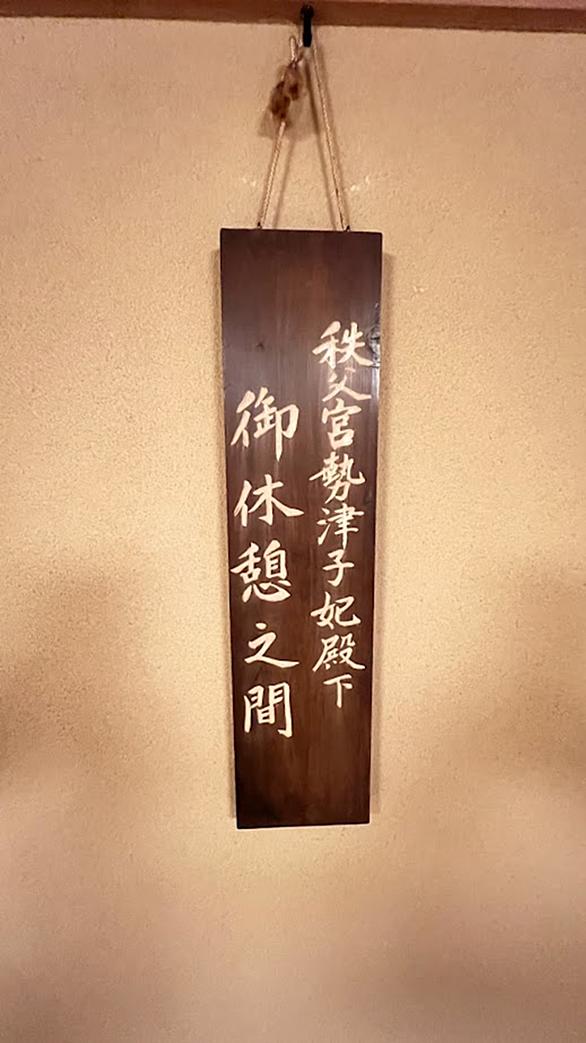 秩父宮勢津子妃殿下
御休憩之間